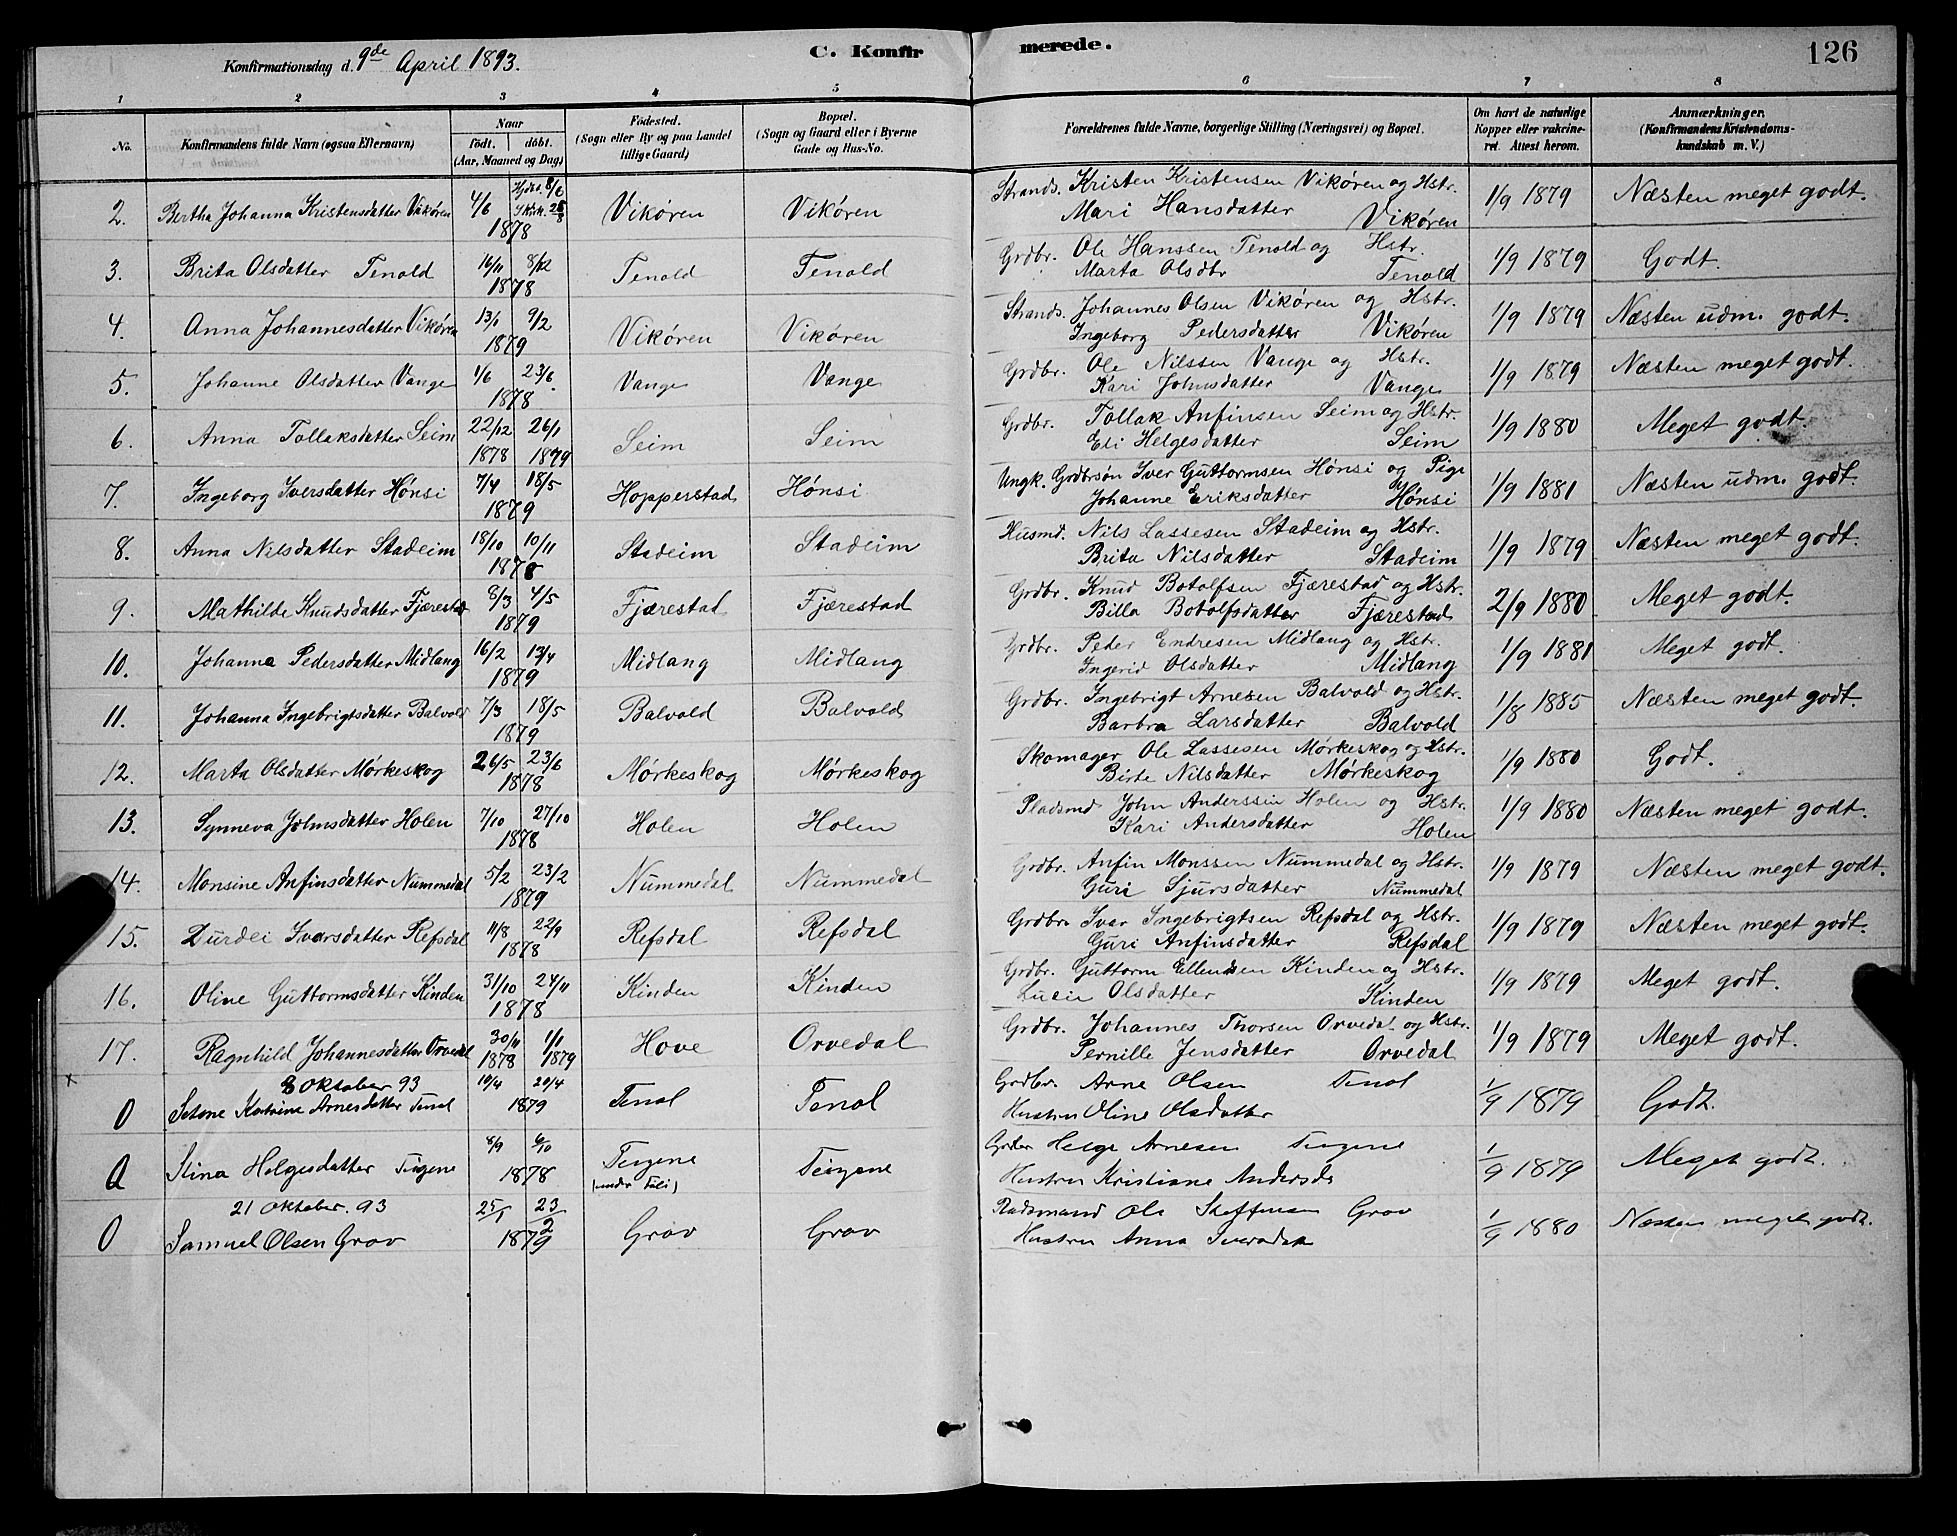 Konfirmationsdag d. 9de April 1893.
C. Konfir
merede.
126
1 2 3 4 5 6 7 8
No.
Konfirmandens fulde Navn (ogsaa Efternavn)
Naar
födt. döbt.
(Aar, Maaned og Dag)
Födested.
(Sogn eller By og paa Landet
tillige Gaard)
Bopæl.
(Sogn og Gaard eller i Byerne
Gade og Hus-No.
Forældrenes fulde Navne, borgerlige Stilling (Næringsvei) og Bopæl.
Om havt de naturlige
Kopper eller vakcine-
ret. Attest herom.
Anmærkninger.
(Konfirmandens Kristendoms-
kundskab m. V.)
2. Bertha Johanna Kristensdatter Vikören 4/6 Hjdbt. 8/6 Vikören Vikören Strands. Kristen Kristensen Vikören og Hstr. 1/9 1879 Næsten meget godt.
1878 Mari Hansdatter Vikören
3. Brita Olsdatter Tenold 16/11 8/12 Tenold Tenold Grdbr. Ole Hanssen Tenold og Hstr. 1/9 1879 Godt.
1878 Marta Olsdtr Tenold
4. Anna Johannesdatter Vikören 13/1 9/2 Vikören Vikören Strands. Johannes Olsen Vikören og Hstr. 1/9 1879 Næsten udm. godt.
1879 Ingeborg Pedersdatter Vikören
5. Johanne Olsdatter Vange 1/6 23/6 Vange Vange Grdbr. Ole Nilssen Vange og Hstr. 1/9 1879 Næsten meget godt.
1878 Kari Johnsdatter Vange
6. Anna Tollaksdatter Seim 22/12 26/1 Seim Seim Grdbr. Tollak Anfinsen Seim og Hstr. 1/9 1880 Meget godt.
1878 1879 Eli Helgesdatter Seim
7. Ingeborg Iversdatter Hönsi 7/4 18/5 Hopperstad Hönsi Ungk. Grdbrsön Iver Guttormsen Hönsi og Pige 1/9 1881 Næsten udm. godt.
1879 Johanne Eriksdatter Hönsi
8. Anna Nilsdatter Stadeim 18/10 10/11 Stadeim Stadeim Husmd. Nils Lassesen Stadeim og Hstr. 1/9 1879 Næsten meget godt.
1878 Brita Nilsdatter Stadeim
9. Mathilde Knudsdatter Fjærestad 8/3 4/5 Fjærestad Fjærestad Grdbr. Knud Botolfsen Fjærestad og Hstr. 2/9 1880 Meget godt.
1879 Billa Botolfsdatter Fjærestad
10. Johanna Pedersdatter Midlang 16/2 13/4 Midlang Midlang Grdbr. Peder Endresen Midlang og Hstr. 1/9 1881 Meget godt.
1879 Ingerid Olsdatter Midlang
11. Johanna Ingebrigtsdatter Balvold 7/3 18/5 Balvold Balvold Grdbr. Ingebrigt Arnesen Balvold og Hstr. 1/8 1885 Næsten meget godt.
1879 Barbra Larsdatter Balvold
12. Marta Olsdatter Mörkeskog 26/5 23/6 Mörkeskog Mörkeskog Skomager Ole Lassesen Mörkeskog og Hstr. 1/9 1880 Godt.
1878 Birte Nilsdatter Mörkeskog
13. Synneva Johnsdatter Holen 7/10 27/10 Holen Holen Pladsmd John Anderssen Holen og Hstr. 1/9 1880 Næsten meget godt.
1878 Kari Andersdatter Holen
14. Monsine Anfinsdatter Nummedal 5/2 23/2 Nummedal Nummedal Grdbr. Anfin Monssen Nummedal og Hstr. 1/9 1879 Næsten meget godt.
1879 Guri Sjursdatter Nummedal
15. Durdei Ivarsdatter Refsdal 11/8 22/9 Refsdal Refsdal Grdbr. Ivar Ingebrigtsen Refsdal og Hstr. 1/9 1879 Næsten meget godt.
1878 Guri Anfinsdatter Refsdal
16. Oline Guttormsdatter Kinden 31/10 24/11 Kinden Kinden Grdbr. Guttorm Ellendsen Kinden og Hstr. 1/9 1879 Meget godt.
1878 Lucie Olsdatter Kinden
17. Ragnhild Johannesdatter Orvedal 30/11 1/1 Hove Orvedal Grdbr. Johannes Thorsen Orvedal og Hstr. 1/9 1879 Meget godt.
1878 1879 Pernille Jensdatter Orvedal
x 8 Oktober 93 10/4 20/4 Tenol Tenol Grdbr. Arne Olsen Tenol 1/9 1879 Godt.
0 Katrine Arnesdatter Tenol 1879 Hustru Oline Olsdatter
0 Stina Helgesdatter Teigene 8/9 6/10 Teigene Teigene Helge Arnesen Teigene 1/9 1879 Meget godt.
1878 (under Tuli) Hustru Kristiane Andersdr
21 Oktober. 93 25/1 23/2 Grov Grov Pladsmand Ole Steffensen Grov 1/9 1880 Næsten meget godt.
0 Samuel Olsen Grov 1879 Hustru Anna Iversdatr